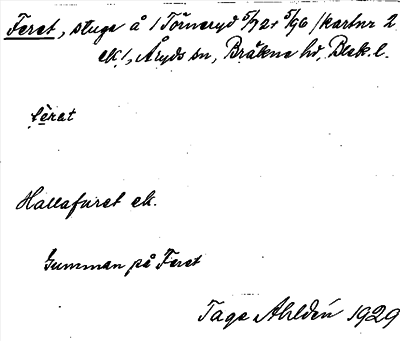 Feret, stuga å 1 Törneryd 5/72+5/96 /kartnr 2
ek/, Åryds sn, Bräkne hd, Blek. l.
fèrat
Hallafuret ek.
Gumman på Feret
Tage Ahldén 1929